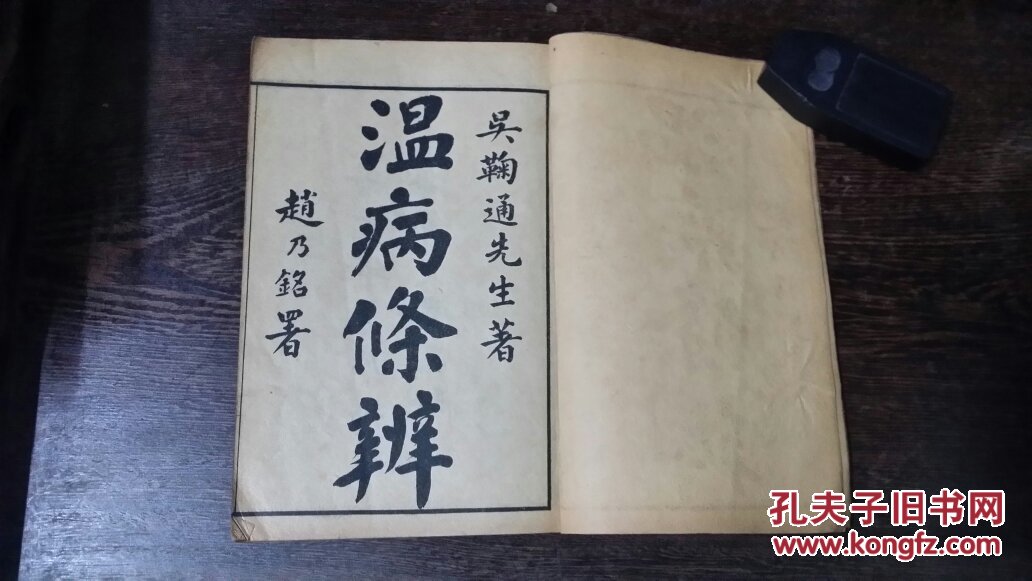 吳鞠通先生著
温病條辨
趙乃銘署
孔夫子旧书网
www.kongfz.com